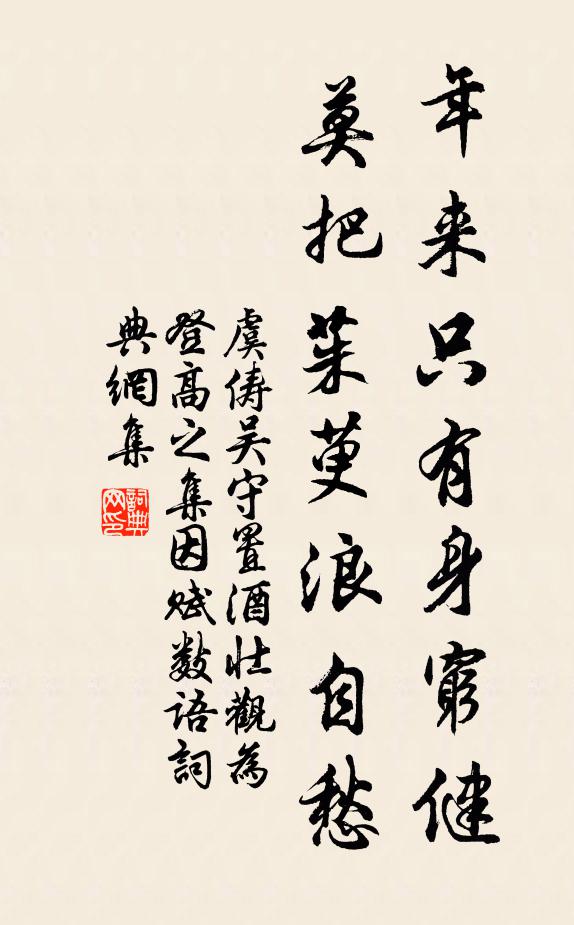 年来只有身窮健
莫把茱萸浪自愁
虞儔吴守置酒壮觀為
登高之集因赋数语詞
典網集
詞典网印